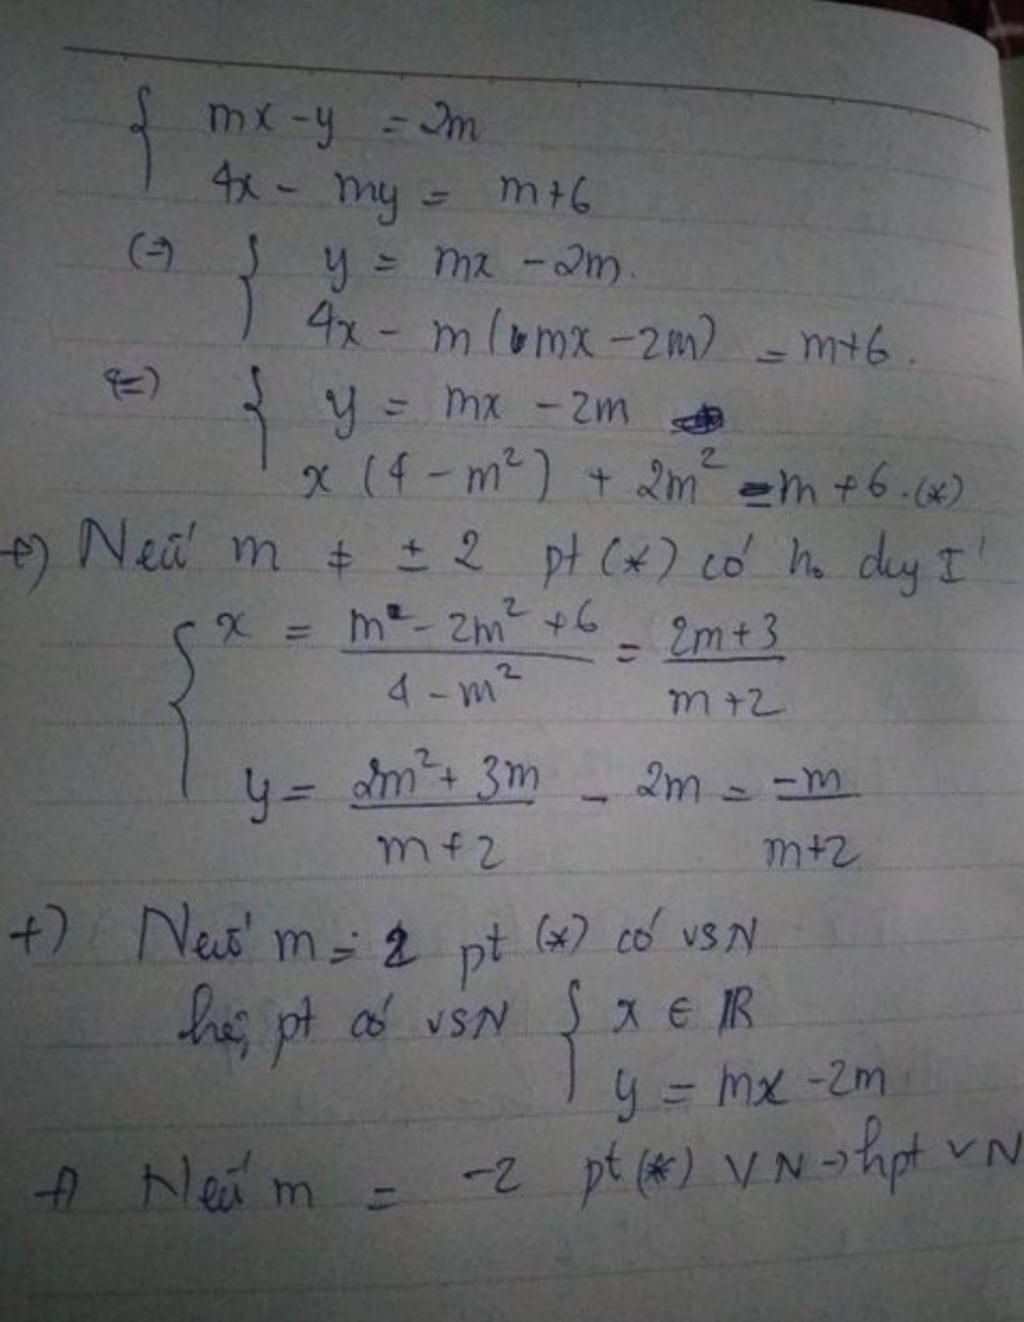 { mx - y = 2m
4x - my = m+6
(=) { y = mx - 2m.
4x - m (mx - 2m) = m+6.
(=) { y = mx - 2m
x (4 - m²) + 2m² = m + 6. (*)
+) Nếu m ≠ ± 2 pt (*) có no duy I'
{ x = (m - 2m² + 6)/(4 - m²) = (2m+3)/(m+2)
y = (2m² + 3m)/(m+2) - 2m = (-m)/(m+2)
+) Nếu m = 2 pt (*) có VSN
hệ pt có VSN { x ∈ ℝ
y = mx - 2m
+) Nếu m = -2 pt (*) VN → hpt VN